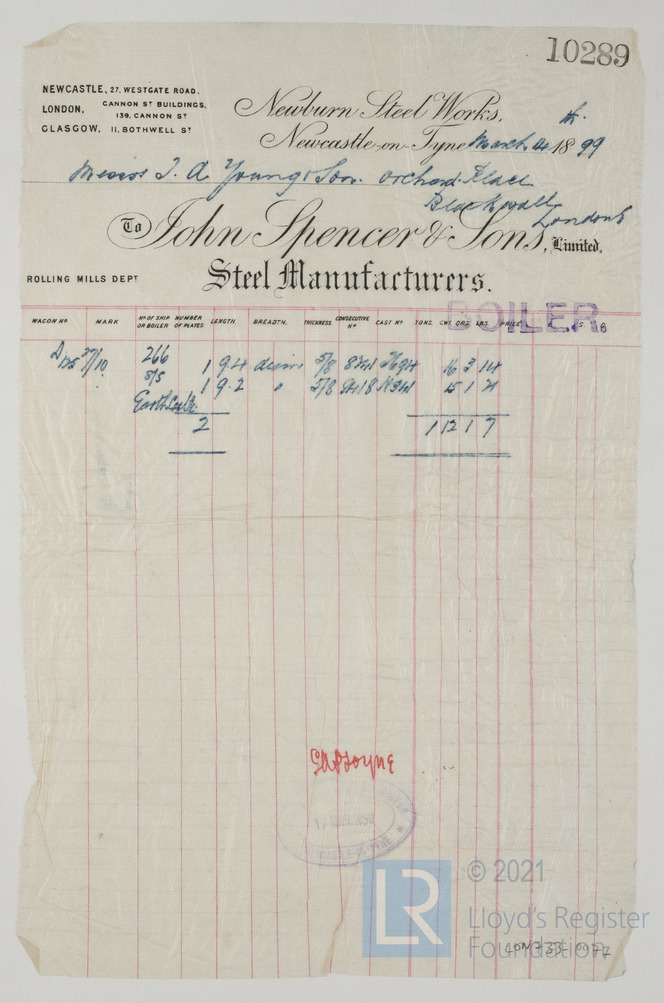 10289
NEWCASTLE, 27, WESTGATE ROAD.
LONDON, CANNON ST BUILDINGS, 139, CANNON ST
GLASGOW, 11, BOTHWELL ST
Newburn Steel Works,
Newcastle-on-Tyne March 14th 1899
Messrs I. A. Young & Son. Orchard Place
Blackwall
London E
To John Spencer & Sons, Limited,
Steel Manufacturers.
ROLLING MILLS DEPT
BOILER
WAGON No MARK No OF SHIP OR BOILER NUMBER OF PLATES LENGTH. BREADTH. THICKNESS. CONSECUTIVE No CAST No TONS. CWT. QRS. LBS. PRICE S.
27/10 266 1 9.4 5/8 16 3 14
S/S 1 9.2 " 5/8 15 1 21
2 1 12 1 7
© 2021
LR
Lloyd's Register
Foundation
LON-733-0077